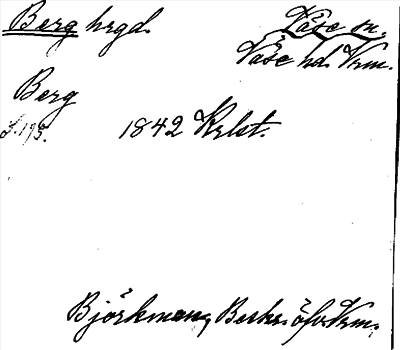 Berg hrgd. Väse sn.
Väse hd. Vrm.
Berg
S. 193. 1842 Krlst.
Björkman, Beskr. öfv. Vrm.